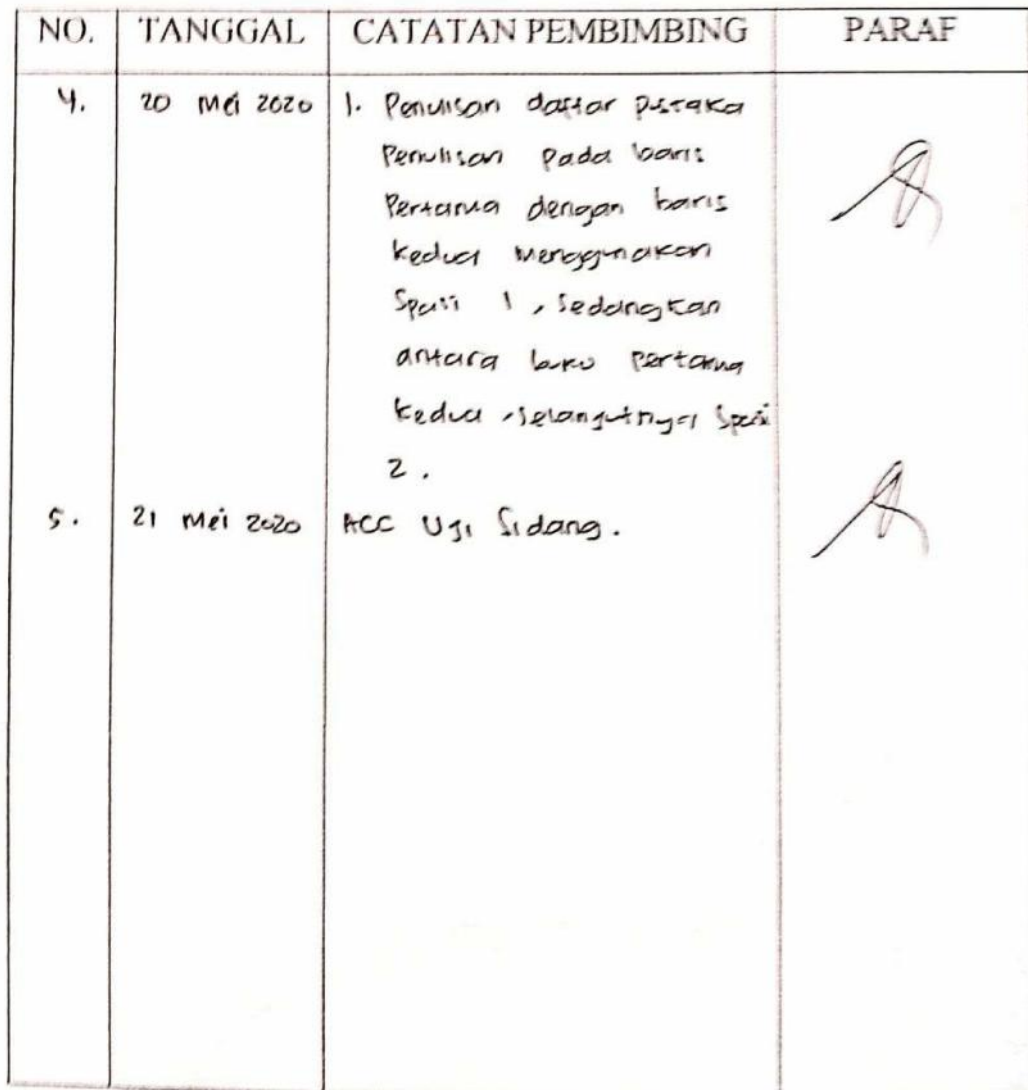 NO. TANGGAL CATATAN PEMBIMBING PARAF
4. 20 Mei 2020 1. Penulisan daftar pustaka
Penulisan pada baris
Pertama dengan baris
kedua menggunakan
Spasi 1, Sedangkan
antara buku pertama
kedua, selanjutnya Spasi
2.
5. 21 Mei 2020 ACC Uji Sidang.